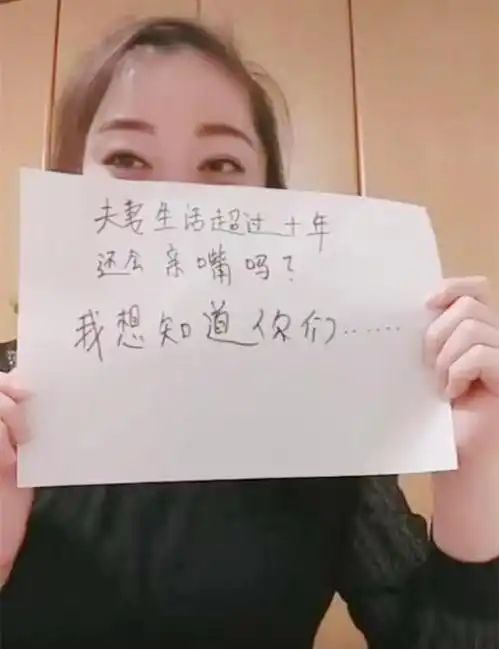 夫妻生活超过十年
还会亲嘴吗？
我想知道你们……